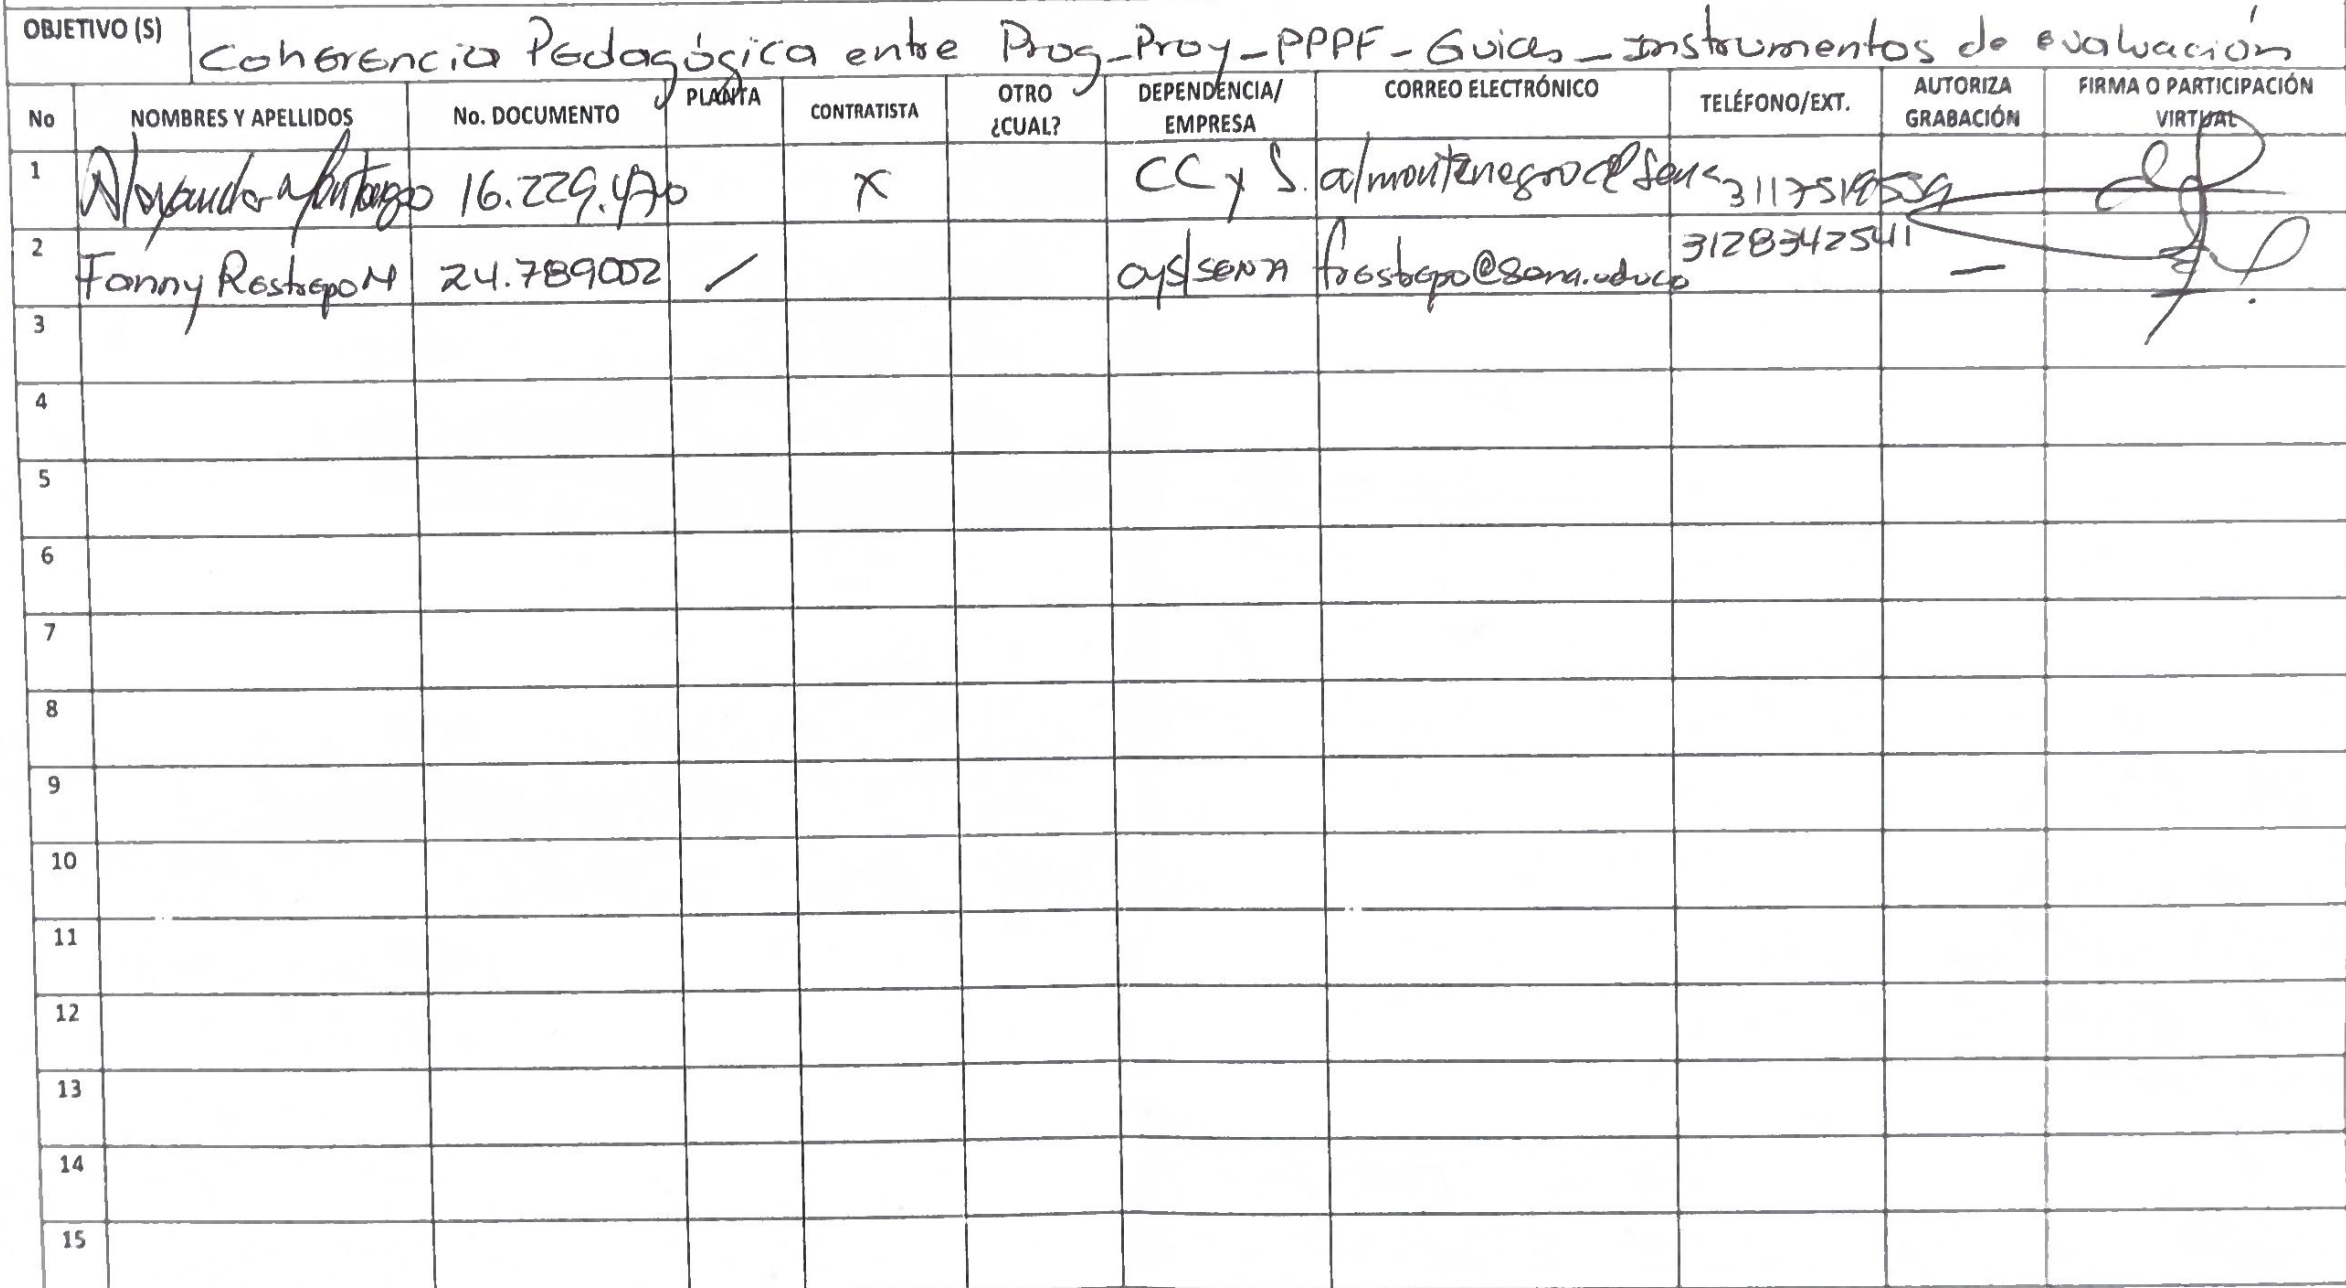 OBJETIVO (S) Coherencia Pedagógica entre Prog_Proy_PPPF_Guias_Instrumentos de evaluación
No NOMBRES Y APELLIDOS No. DOCUMENTO PLANTA CONTRATISTA OTRO ¿CUAL? DEPENDENCIA/ EMPRESA CORREO ELECTRÓNICO TELÉFONO/EXT. AUTORIZA GRABACIÓN FIRMA O PARTICIPACIÓN VIRTUAL
1 X CC y S. almontenegroc@sena
2 Fanny Restrepo M 24.789002 / cys/SENA frestrepo@sena.edu.co 3128342541 —
3
4
5
6
7
8
9
10
11
12
13
14
15